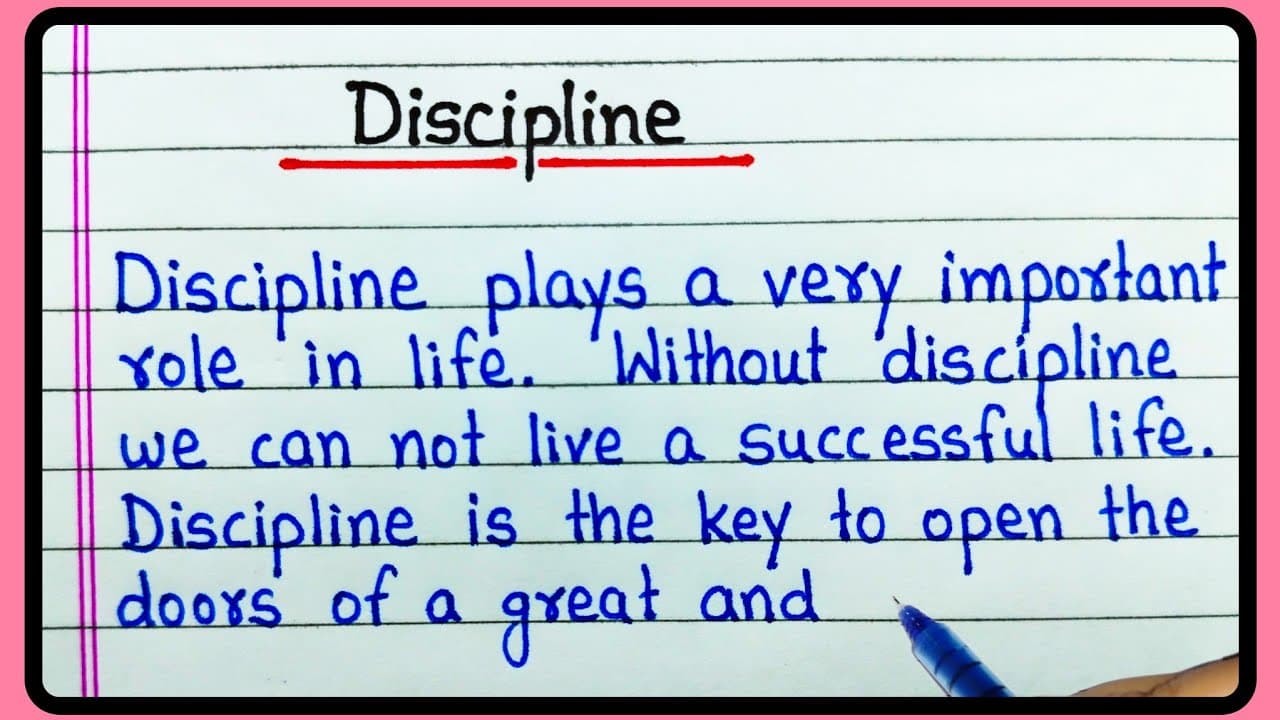 Discipline
Discipline plays a very important
role in life. Without discipline
we can not live a successful life.
Discipline is the key to open the
doors of a great and